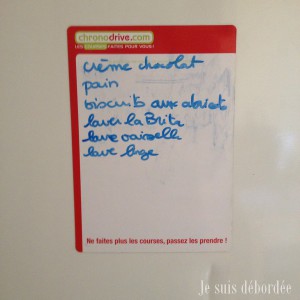 chronodrive.com
LES COURSES FAITES POUR VOUS !
crème chocolat
pain
biscuits aux abricots
laver la Brita
lave vaisselle
lave linge
Ne faites plus les courses, passez les prendre !
Je suis débordée